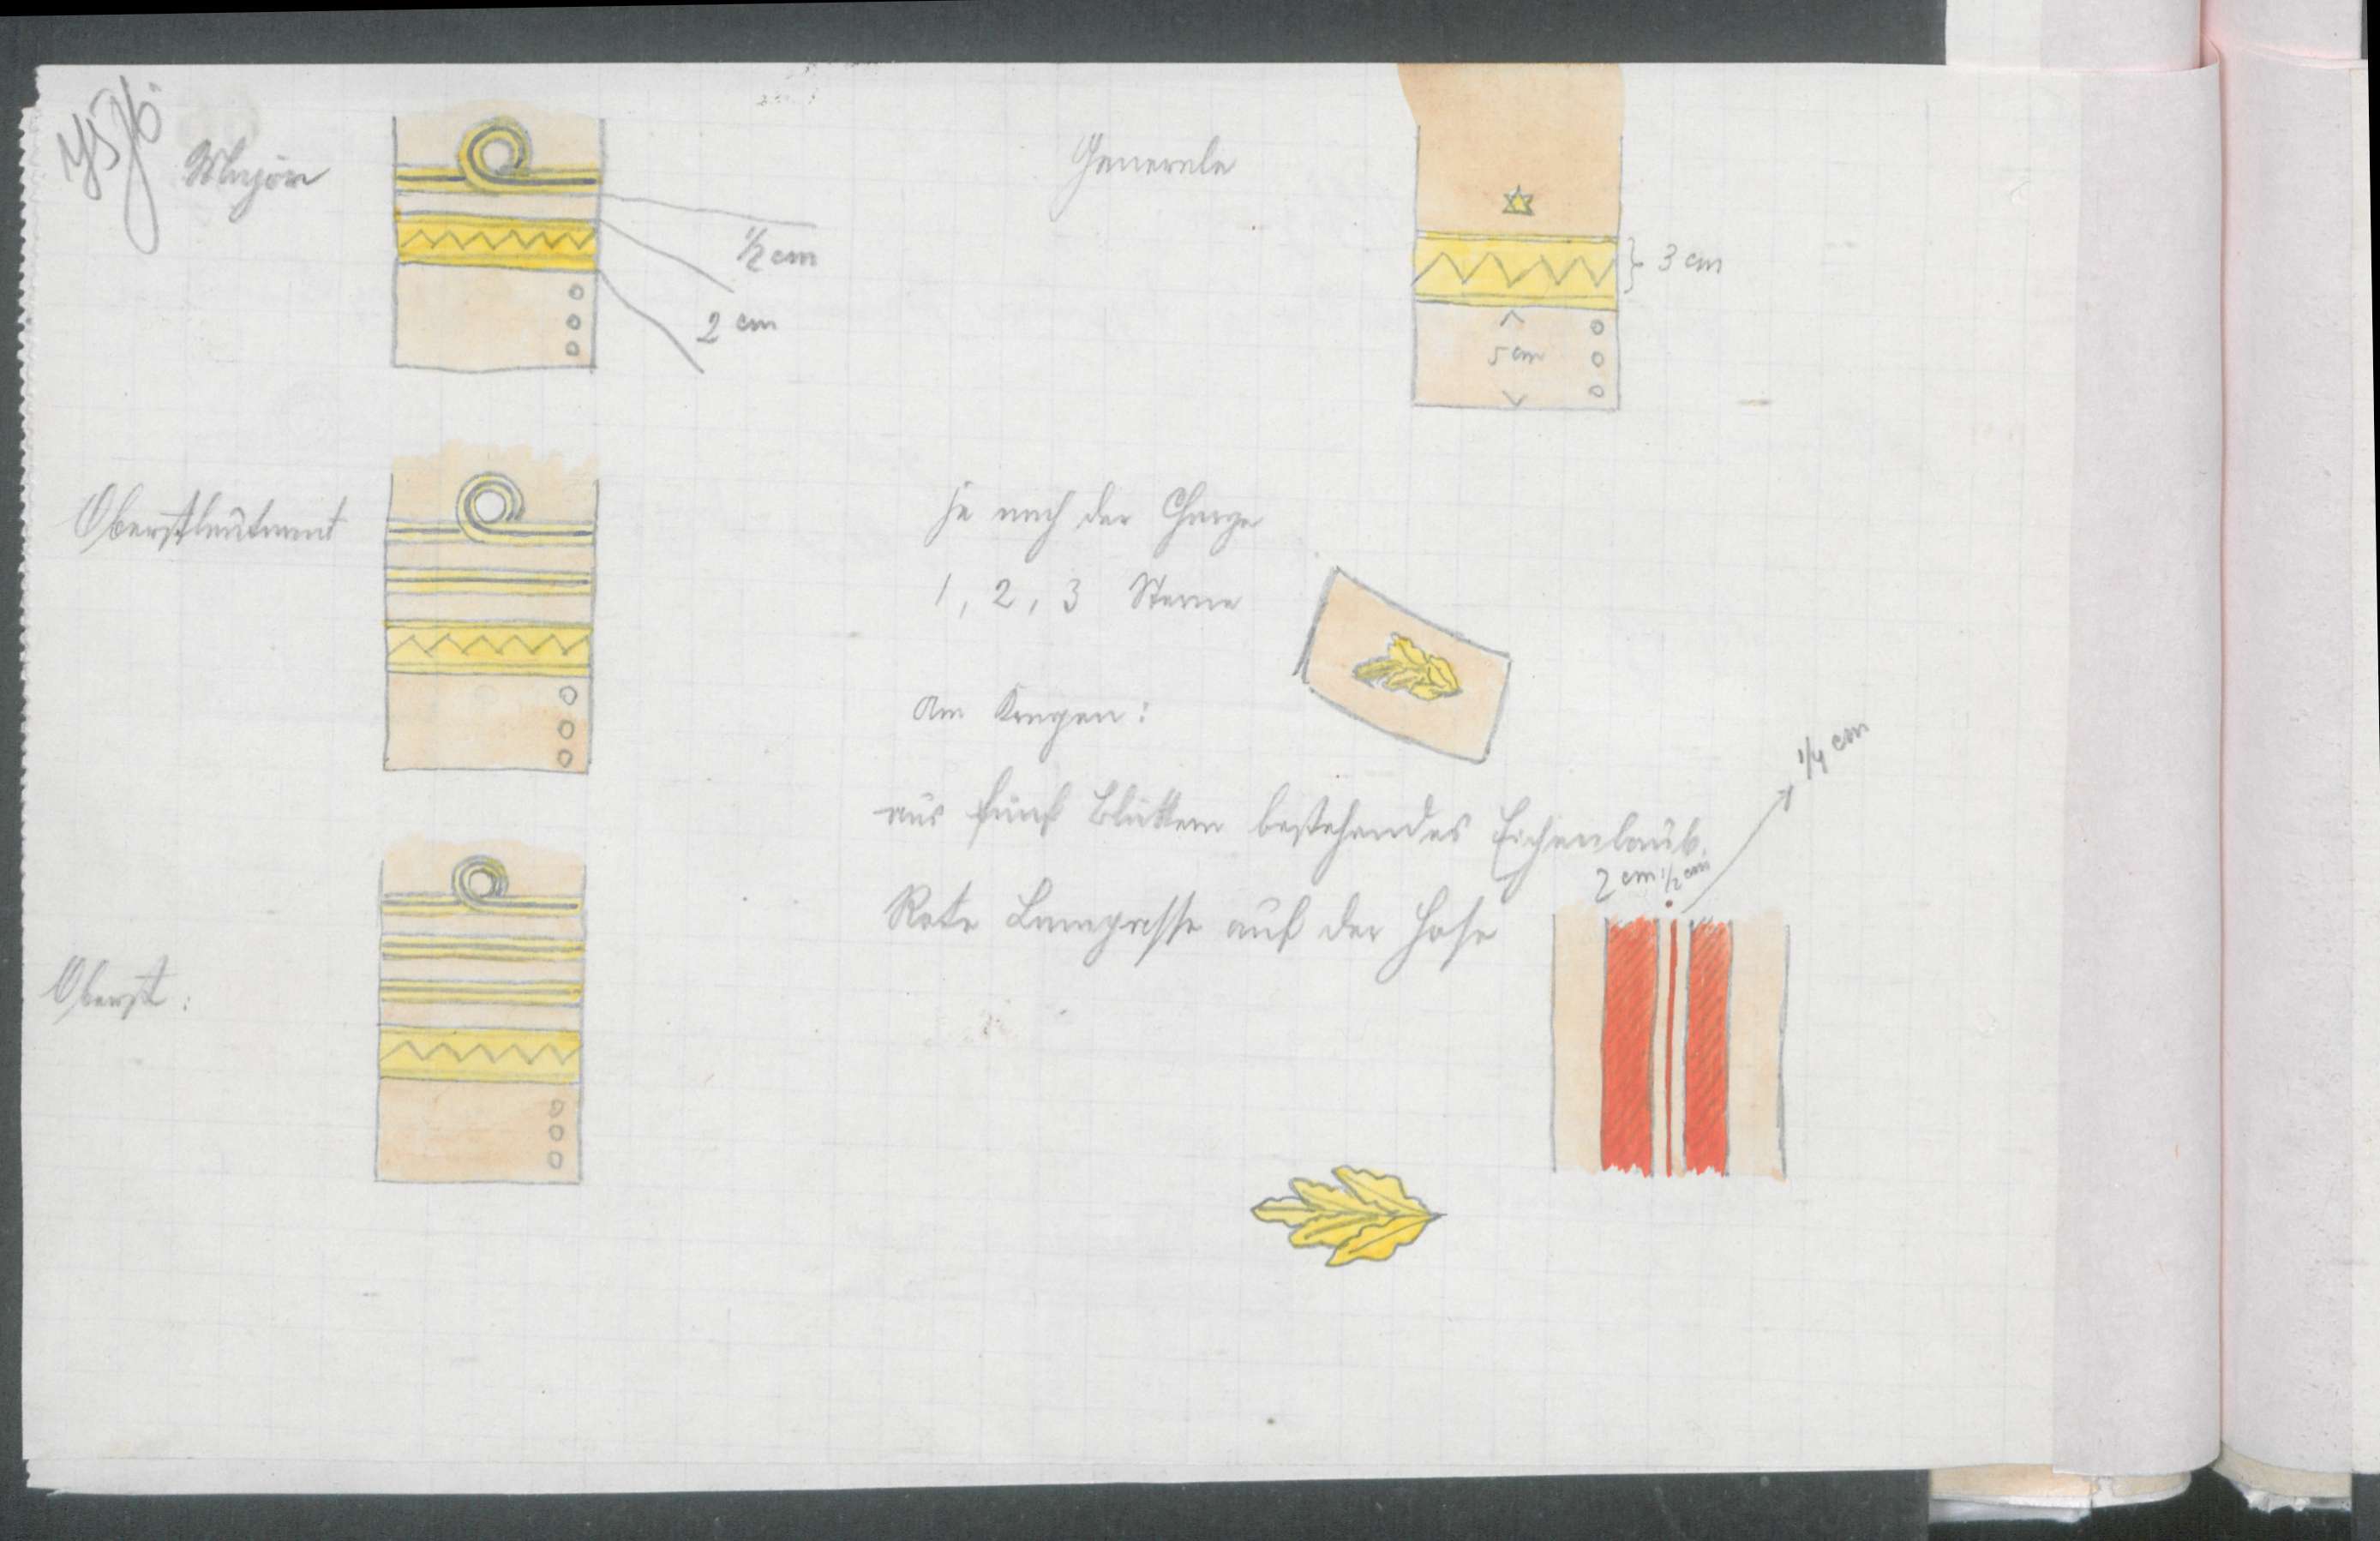 Major
½ cm
2 cm
Oberstleutnant
Oberst:
Generale
3 cm
5 cm
je nach der Charge
1, 2, 3 Sterne
Am Kragen:
aus fünf Blättern bestehendes Eichenlaub.
Rote Lampasse auf der Hose
2 cm ½ cm
¼ cm